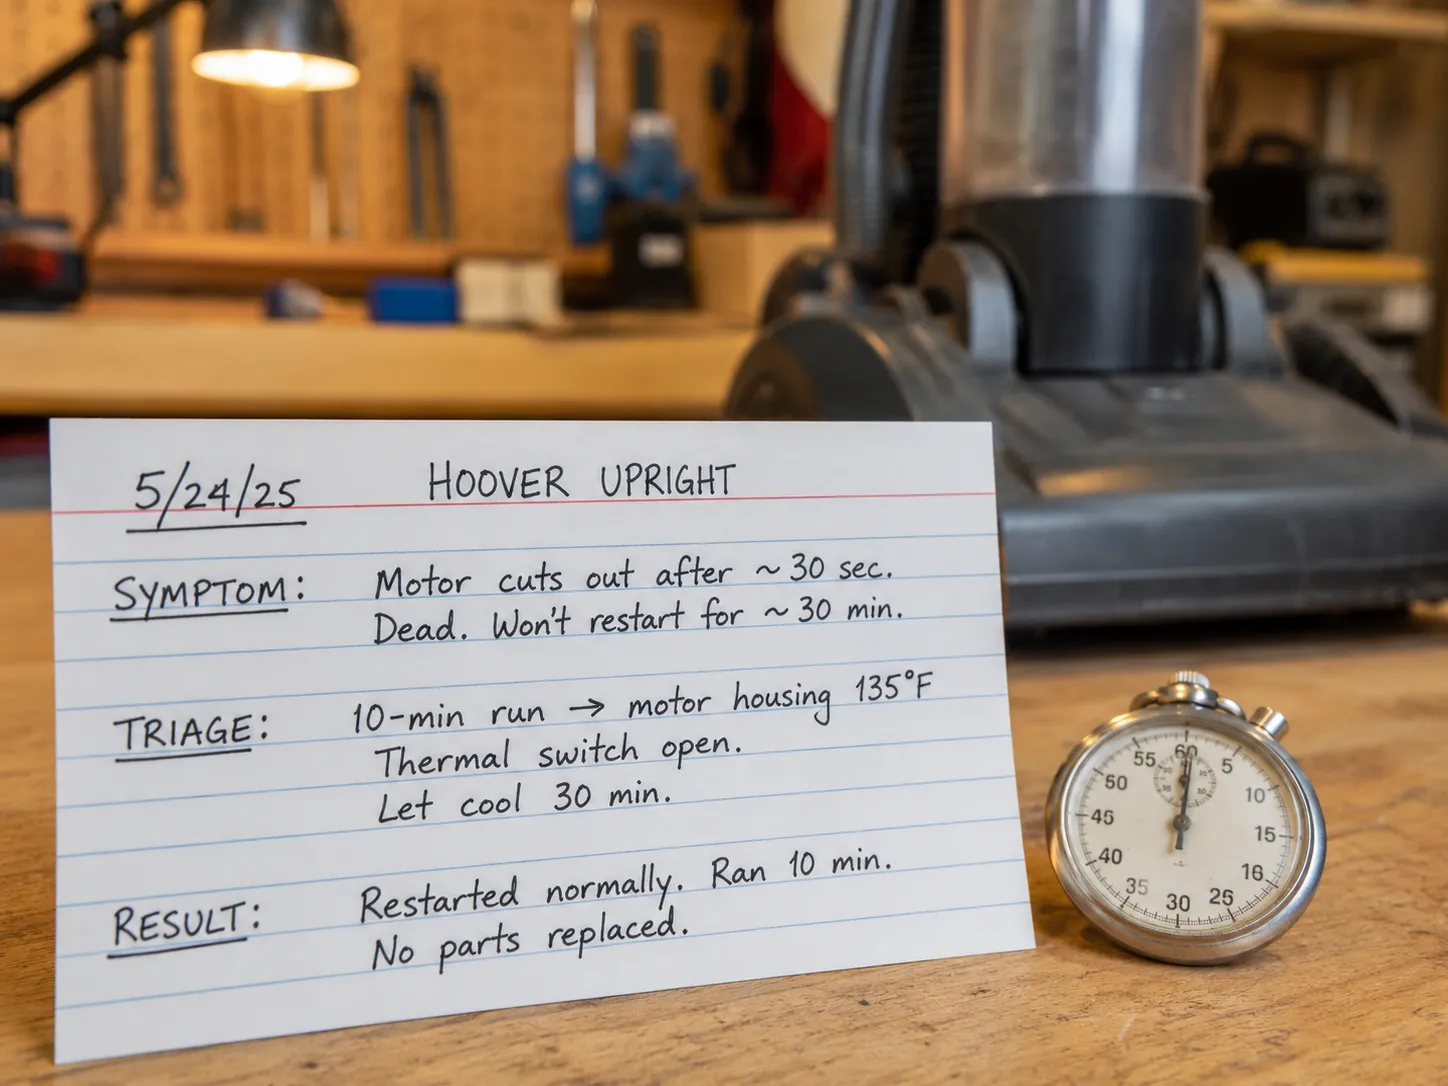 5/24/25 HOOVER UPRIGHT
SYMPTOM: Motor cuts out after ~30 sec.
Dead. Won't restart for ~30 min.
TRIAGE: 10-min run → motor housing 135°F
Thermal switch open.
Let cool 30 min.
RESULT: Restarted normally. Ran 10 min.
No parts replaced.
60
5
10
15
16
25
30
35
40
45
50
55